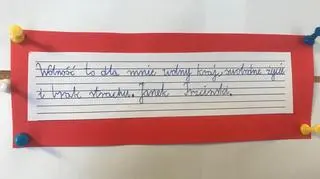 Wolność to dla mnie wolny kraj, swobodne życie
i brak strachu. Janek